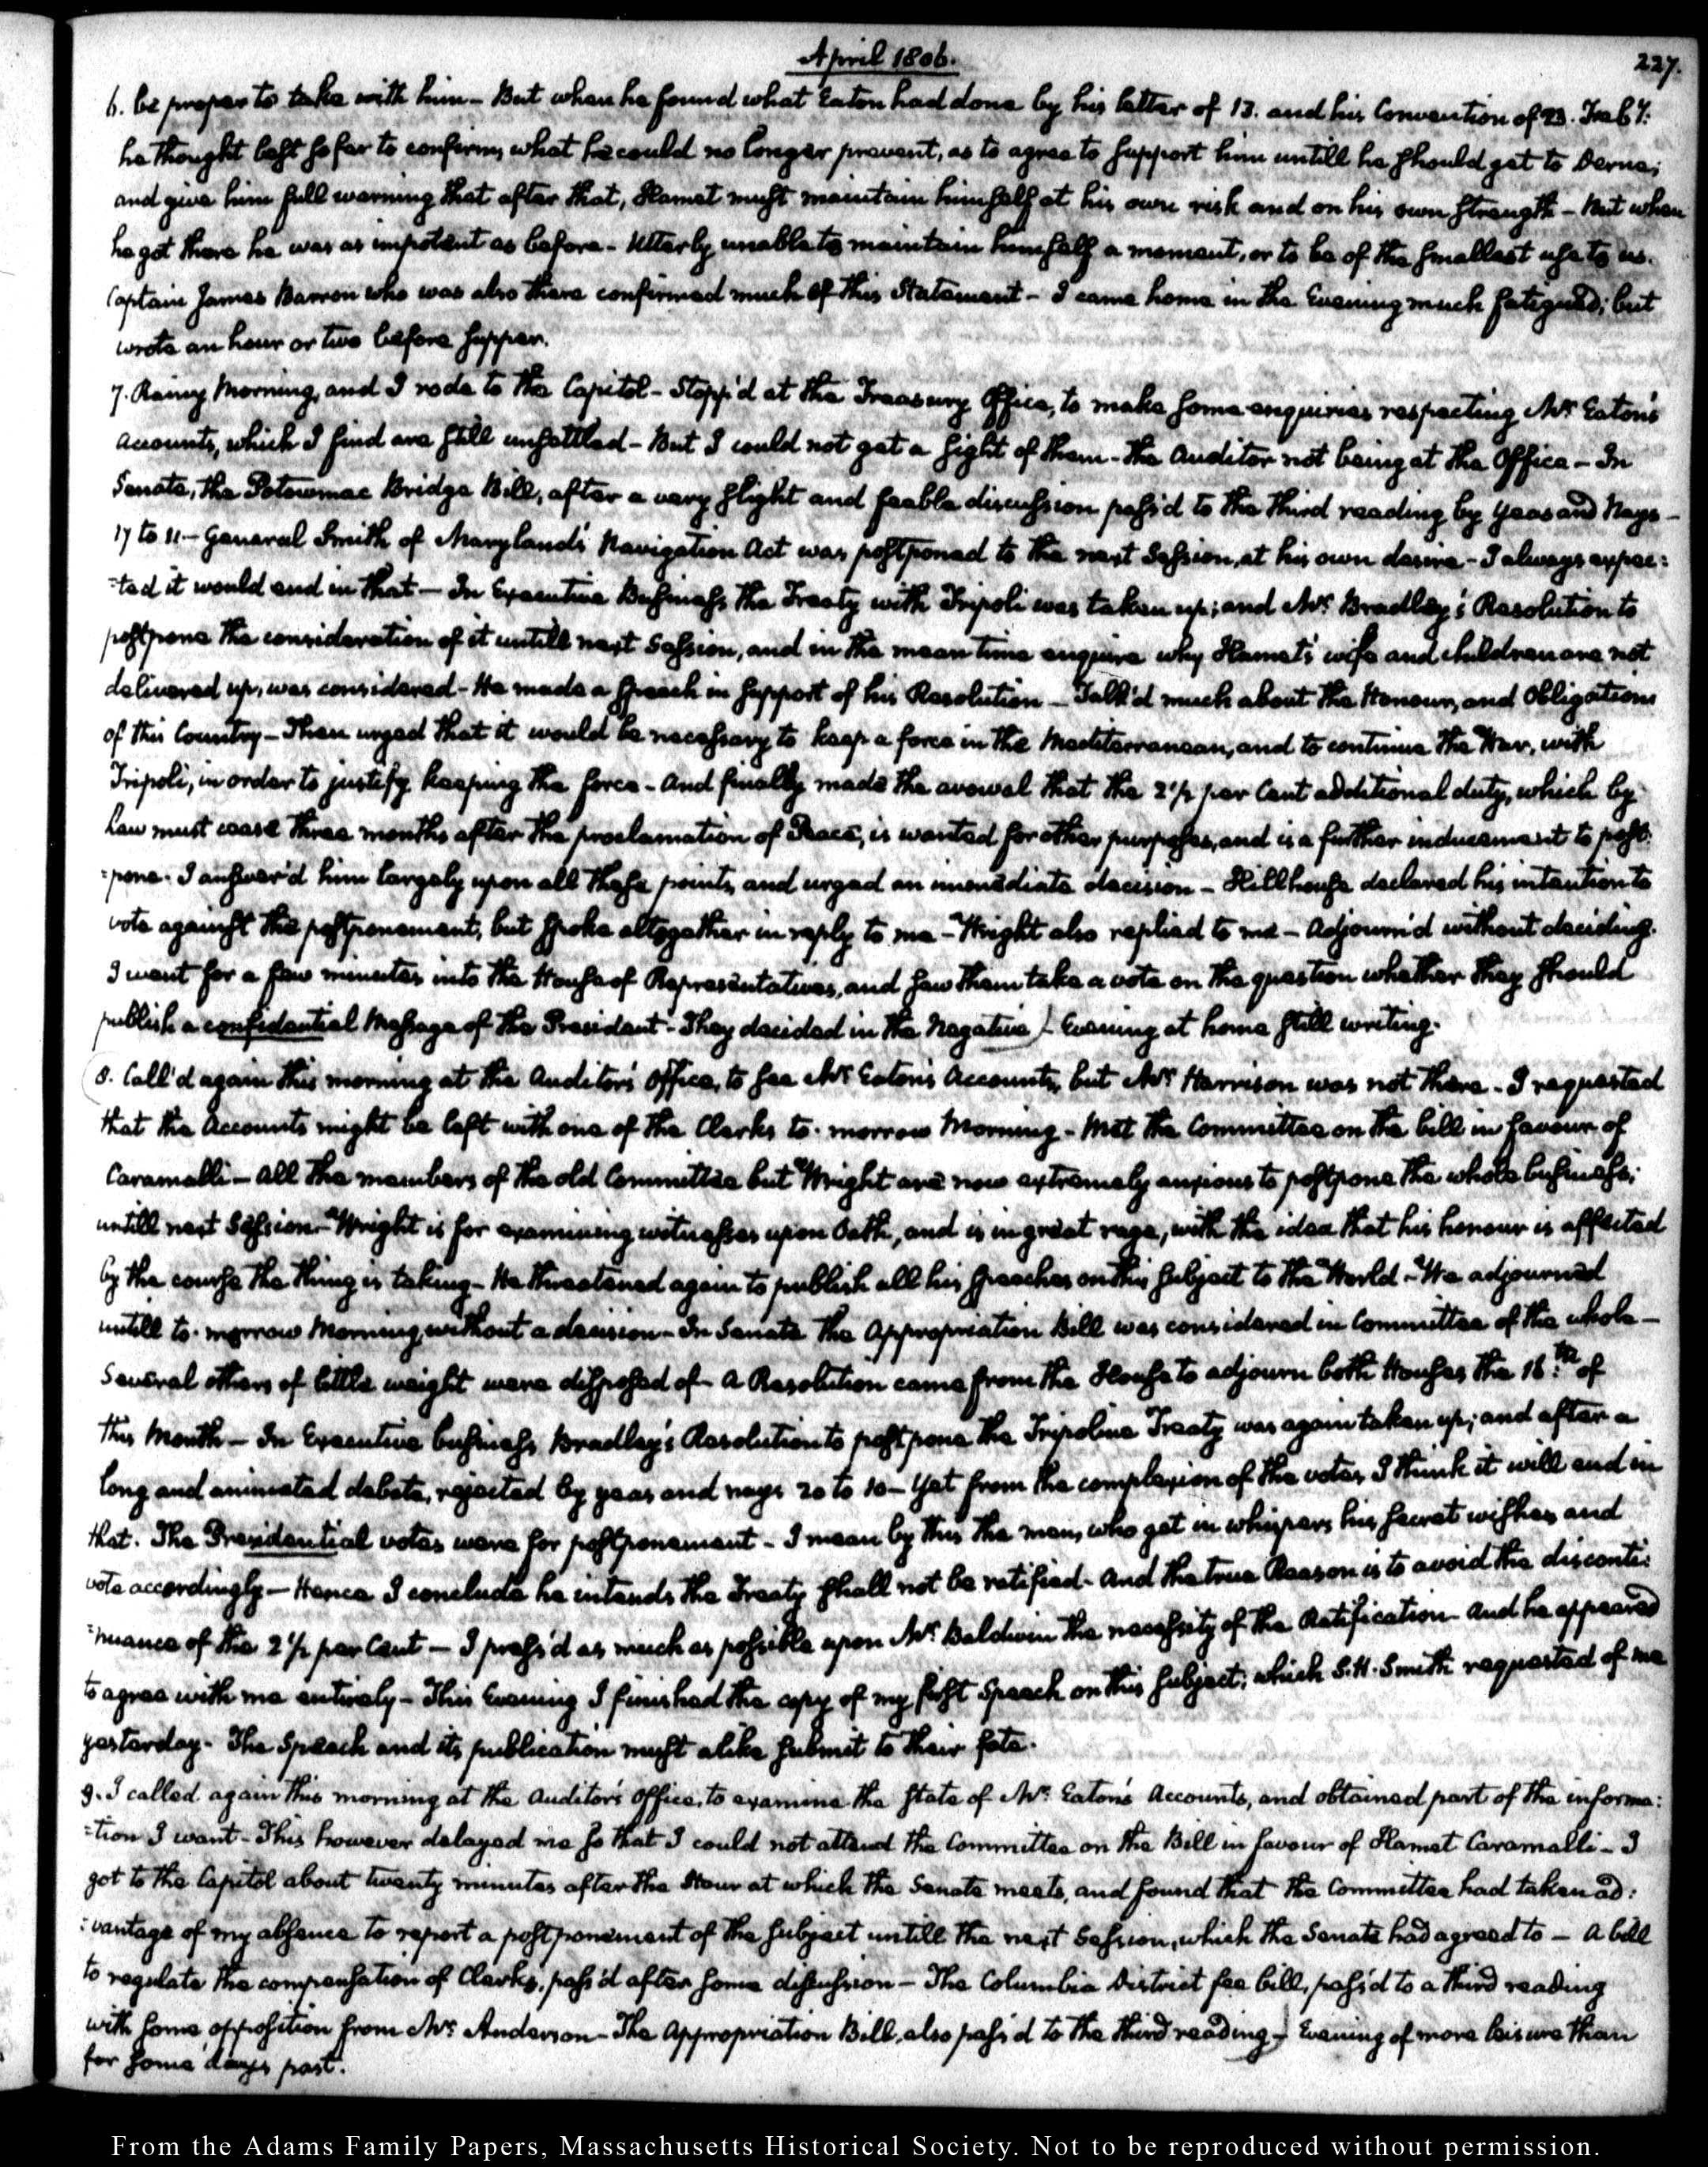 April 1806.
227.
6. be proper to take with him – But when he found what Eaton had done by his letter of 13. and his Convention of 23. Feby:
he thought best so far to confirm, what he could no longer prevent, as to agree to support him untill he should get to Derne;
and give him full warning that after that, Hamet must maintain himself at his own risk and on his own strength – But when
he got there he was as impotent as before – Utterly unable to maintain himself a moment, or to be of the smallest use to us.
Captain James Barron who was also there confirmed much of this Statement – I came home in the Evening much fatigued; but
wrote an hour or two before supper.
7. Rainy Morning, and I rode to the Capitol – Stopp'd at the Treasury Office, to make some enquiries respecting Mr Eaton's
accounts, which I find are still unsettled – But I could not get a sight of them – the Auditor not being at the Office – In
Senate, the Potowmac Bridge Bill, after a very slight and feeble discussion pass'd to the third reading by Yeas and Nays –
17 to 11 – General Smith of Maryland's Navigation Act was postponed to the next Session, at his own desire – I always expec:
:ted it would end in that – In Executive Business the Treaty with Tripoli was taken up; and Mr Bradley's Resolution to
postpone the consideration of it untill next Session, and in the mean time enquire why Hamet's wife and children are not
delivered up, was considered – He made a speech in support of his Resolution – Talk'd much about the Honour, and Obligations
of this Country – Then urged that it would be necessary to keep a force in the Mediterranean, and to continue the War, with
Tripoli, in order to justify keeping the force – And finally made the avowal that the 2 1/2 per Cent additional duty, which by
Law must cease three months after the proclamation of Peace, is wanted for other purposes, and is a further inducement to post:
:pone. I answer'd him largely upon all these points, and urged an immediate decision – Hillhouse declared his intention to
vote against the postponement, but spoke altogether in reply to me – Wright also replied to me – Adjourn'd without deciding.
I went for a few minutes into the House of Representatives, and saw them take a vote on the question whether they should
publish a confidential Message of the President – They decided in the Negative – Evening at home still writing.
8. Call'd again this morning at the Auditor's Office, to see Mr Eaton's Accounts, but Mr Harrison was not there – I requested
that the Accounts might be left with one of the Clerks to-morrow Morning – Met the Committee on the bill in favour of
Caramalli – All the members of the old Committee but Wright are now extremely anxious to postpone the whole business;
untill next Session – Wright is for examining witnesses upon Oath, and is in great rage, with the idea that his honour is affected
by the course the thing is taking – He threatened again to publish all his speeches on this subject to the World – We adjourned
untill to-morrow Morning without a decision – In Senate the Appropriation Bill was considered in Committee of the whole –
Several others of little weight were disposed of – A Resolution came from the House to adjourn both Houses the 18th of
this Month – In Executive business, Bradley's Resolution to postpone the Tripoline Treaty was again taken up; and after a
long and animated debate, rejected by yeas and nays 20 to 10 – Yet from the complexion of the votes I think it will end in
that. The Presidential votes were for postponement – I mean by this the men, who get in whispers his secret wishes and
vote accordingly – Hence I conclude he intends the Treaty shall not be ratified – And the true Reason is to avoid the disconti:
:nuance of the 2 1/2 per Cent – I press'd as much as possible upon Mr Baldwin the necessity of the Ratification – And he appeared
to agree with me entirely – This Evening I finished the copy of my first Speech on this subject; which S. H. Smith requested of me
yesterday – The Speech and its publication must alike submit to their fate.
9. I called again this morning at the Auditor's Office, to examine the state of Mr Eaton's Accounts, and obtained part of the informa:
:tion I want – This however delayed me so that I could not attend the Committee on the Bill in favour of Hamet Caramalli – I
got to the Capitol about twenty minutes after the Hour at which the Senate meets, and found that the Committee had taken ad:
:vantage of my absence to report a postponement of the subject untill the next Session, which the Senate had agreed to – A bill
to regulate the compensation of Clerks, pass'd after some discussion – The Columbia District fee bill, pass'd to a third reading
with some opposition from Mr Anderson – The Appropriation Bill, also pass'd to the third reading – Evening of more leisure than
for some days past.
From the Adams Family Papers, Massachusetts Historical Society. Not to be reproduced without permission.